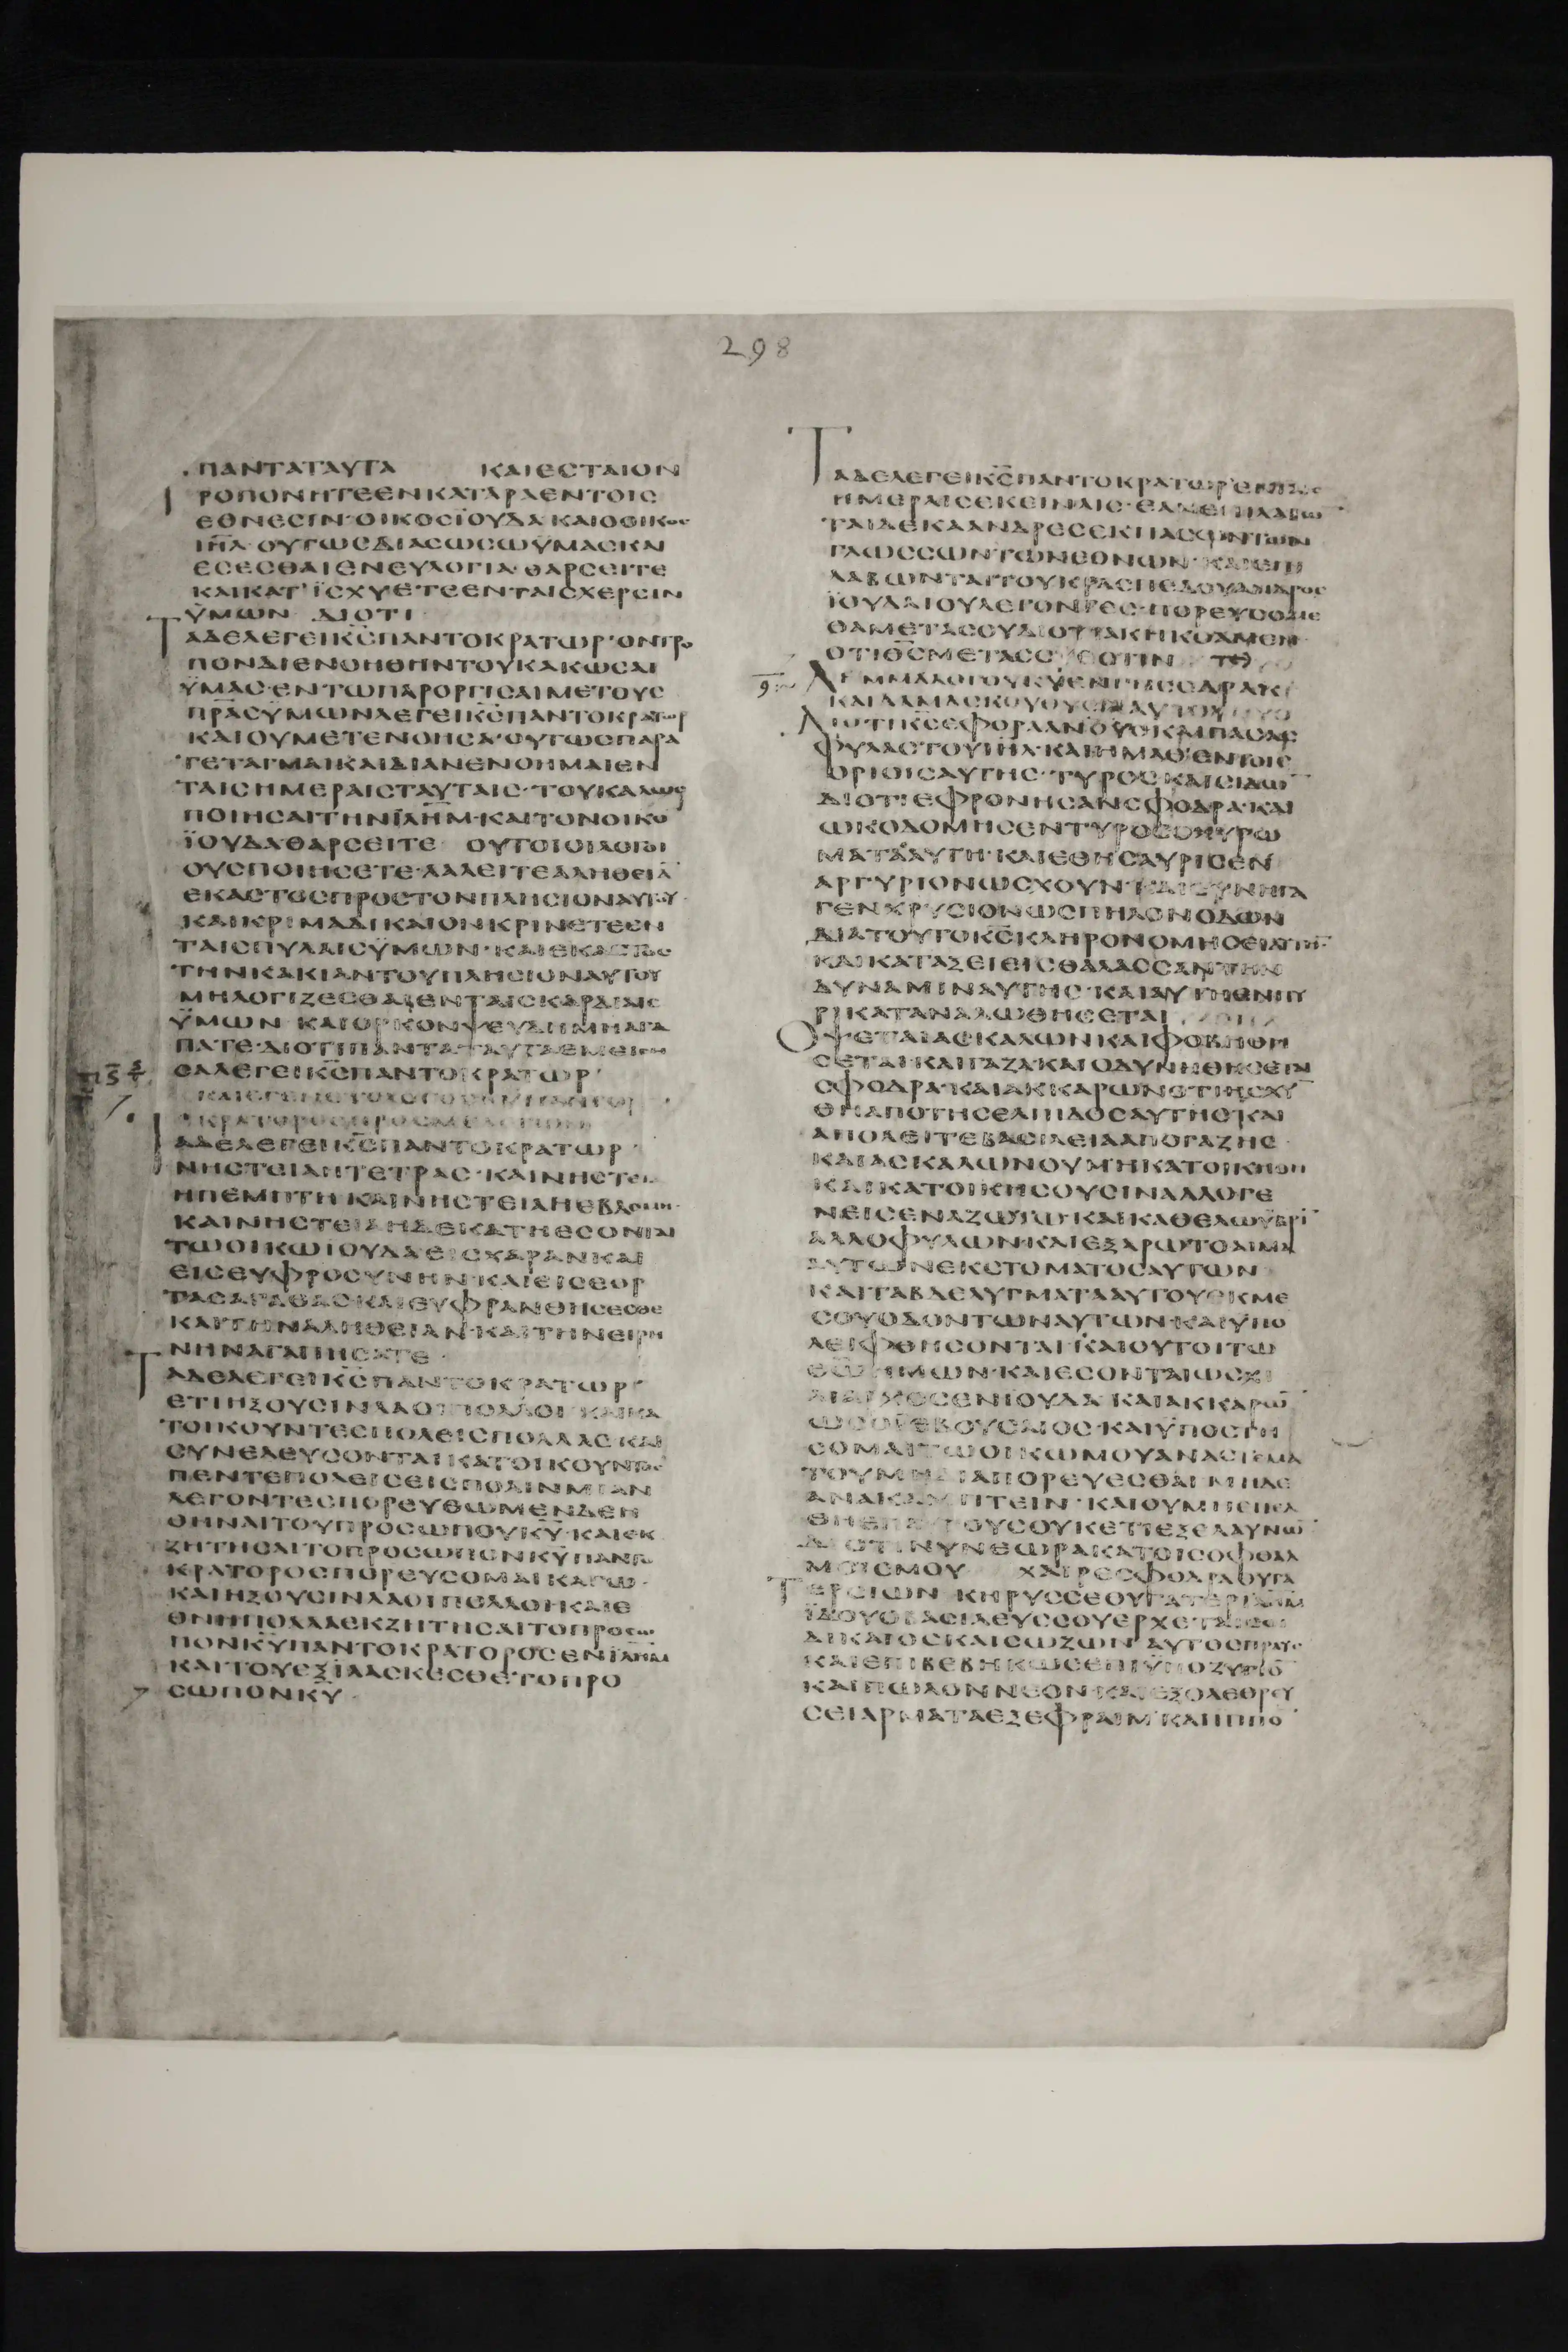 298
ΠΑΝΤΑΤΑΥΤΑ ΚΑΙΕСΤΑΙΟΝ
ΡΟΠΟΝΗΤΕΕΝΚΑΤΑΡΑΕΝΤΟΙС
ΕΘΝΕСΙΝ·ΟΙΚΟСΪΟΥΔΑΚΑΙΟΟΙΚΟС
ΙΗΛ ΟΥΤΩСΔΙΑСΩСΩΫΜΑСΚΑΙ
ΕСΕСΘΑΙΕΝΕΥΛΟΓΙΑ·ΘΑΡСΕΙΤΕ
ΚΑΙΚΑΤΪСΧΥΕΤΕΕΝΤΑΙСΧΕΡСΙΝ
ΫΜΩΝ ΔΙΟΤΙ
ΤΑΔΕΛΕΓΕΙΚ̅С̅ΠΑΝΤΟΚΡΑΤΩΡ·ΟΝΤΡΟ
ΠΟΝΔΙΕΝΟΗΘΗΝΤΟΥΚΑΚΩСΑΙ
ΫΜΑС·ΕΝΤΩΠΑΡΟΡΓΙСΑΙΜΕΤΟΥС
ΠΡ̅Α̅СΫΜΩΝΛΕΓΕΙΚ̅С̅ΠΑΝΤΟΚΡΑΤΩΡ
ΚΑΙΟΥΜΕΤΕΝΟΗСΑ·ΟΥΤΩСΠΑΡΑ
ΤΕΤΑΓΜΑΙΚΑΙΔΙΑΝΕΝΟΗΜΑΙΕΝ
ΤΑΙСΗΜΕΡΑΙСΤΑΥΤΑΙС·ΤΟΥΚΑΛΩС
ΠΟΙΗСΑΙΤΗΝΪΛΗΜ·ΚΑΙΤΟΝΟΙΚΟ̅
ΪΟΥΔΑ·ΘΑΡСΕΙΤΕ ΟΥΤΟΙΟΙΛΟΓΟΙ
ΟΥСΠΟΙΗСΕΤΕ·ΛΑΛΕΙΤΕΑΛΗΘΕΙΑ̅
ΕΚΑСΤΟСΠΡΟСΤΟΝΠΛΗСΙΟΝΑΥΤΟΥ·
ΚΑΙΚΡΙΜΑΔΙΚΑΙΟΝΚΡΙΝΕΤΕΕΝ
ΤΑΙСΠΥΛΑΙСΫΜΩΝ·ΚΑΙΕΚΑСΤΟС
ΤΗΝΚΑΚΙΑΝΤΟΥΠΛΗСΙΟΝΑΥΤΟΥ
ΜΗΛΟΓΙΖΕСΘΑΙΕΝΤΑΙСΚΑΡΔΙΑΙС
ΫΜΩΝ ΚΑΙΟΡΚΟΝΨΕΥΔΗΜΗΑΓΑ
ΠΑΤΕ·ΔΙΟΤΙΠΑΝΤΑΤΑΥΤΑΕΜΕΙСΗ
СΑΛΕΓΕΙΚ̅С̅ΠΑΝΤΟΚΡΑΤΩΡ·
ΚΑΙΕΓΕΝΕΤΟΛΟΓΟС ΠΑΝΤΟ
ΚΡΑΤΟΡΟСΠΡΟСΜΕΛΕΓΩΝ
ΤΑΔΕΛΕΓΕΙΚ̅С̅ΠΑΝΤΟΚΡΑΤΩΡ·
ΝΗСΤΕΙΑΗΤΕΤΡΑС·ΚΑΙΝΗСΤΕΙΑ
ΗΠΕΜΠΤΗ·ΚΑΙΝΗСΤΕΙΑΗΕΒΔΟΜΗ·
ΚΑΙΝΗСΤΕΙΑΗΔΕΚΑΤΗΕСΟΝΤΑΙ
ΤΩΟΙΚΩΙΟΥΔΑΕΙСΧΑΡΑΝΚΑΙ
ΕΙСΕΥΦΡΟСΥΝΗΝ·ΚΑΙΕΙСΕΟΡ
ΤΑСΑΓΑΘΑСΚΑΙΕΥΦΡΑΝΘΗСΕСΘΕ
ΚΑΙΤΗΝΑΛΗΘΕΙΑΝ·ΚΑΙΤΗΝΕΙΡΗ
ΝΗΝΑΓΑΠΗСΑΤΕ·
ΤΑΔΕΛΕΓΕΙΚ̅С̅ΠΑΝΤΟΚΡΑΤΩΡ·
ΕΤΙΗΞΟΥСΙΝΛΑΟΙΠΟΛΛΟΙ·ΚΑΙΚΑ
ΤΟΙΚΟΥΝΤΕСΠΟΛΕΙСΠΟΛΛΑС·ΚΑΙ
СΥΝΕΛΕΥСΟΝΤΑΙΚΑΤΟΙΚΟΥΝΤΕС
ΠΕΝΤΕΠΟΛΕΙСΕΙСΠΟΛΙΝΜΙΑΝ
ΛΕΓΟΝΤΕСΠΟΡΕΥΘΩΜΕΝΔΕΗ
ΘΗΝΑΙΤΟΥΠΡΟСΩΠΟΥΚ̅Υ̅·ΚΑΙΕΚ
ΖΗΤΗСΑΙΤΟΠΡΟСΩΠΟΝΚ̅Υ̅ΠΑΝΤΟ
ΚΡΑΤΟΡΟСΠΟΡΕΥСΟΜΑΙΚΑΓΩ·
ΚΑΙΗΞΟΥСΙΝΛΑΟΙΠΟΛΛΟΙΚΑΙΕ
ΘΝΗΠΟΛΛΑΕΚΖΗΤΗСΑΙΤΟΠΡΟСΩ
ΠΟΝΚ̅Υ̅ΠΑΝΤΟΚΡΑΤΟΡΟСΕΝΪΛΗΜ
ΚΑΙΤΟΥΕΞΙΛΑСΚΕСΘΕΤΟΠΡΟ
СΩΠΟΝΚ̅Υ̅·
ΤΑΔΕΛΕΓΕΙΚ̅С̅ΠΑΝΤΟΚΡΑΤΩΡ·ΕΝΤΑΙС
ΗΜΕΡΑΙСΕΚΕΙΝΑΙС·ΕΑΝΕΠΙΛΑΒΩ
ΤΑΙΔΕΚΑΑΝΔΡΕСΕΚΠΑСΩΝΤΩΝ
ΓΛΩССΩΝΤΩΝΕΘΝΩΝ·ΚΑΙΕΠΙ
ΛΑΒΩΝΤΑΙΤΟΥΚΡΑСΠΕΔΟΥΑΝΔΡΟС
ΪΟΥΔΑΙΟΥΛΕΓΟΝΤΕС·ΠΟΡΕΥСΟΜΕ
ΘΑΜΕΤΑСΟΥΔΙΟΤΙΑΚΗΚΟΑΜΕΝ
ΟΤΙΟΘ̅С̅ΜΕΤΑСΟΥΕСΤΙΝ
ΛΗΜΜΑΛΟΓΟΥΚ̅Υ̅ΕΝΓΗСΕΔΡΑΚ
ΚΑΙΔΑΜΑСΚΟΥΘΥСΙΑΑΥΤΟΥ
ΔΙΟΤΙΚ̅С̅ΕΦΟΡΑΑΝΟΥС·ΚΑΙΠΑСΑС
ΦΥΛΑСΤΟΥΙΗΛ·ΚΑΙΗΜΑΘ·ΕΝΤΟΙС
ΟΡΙΟΙСΑΥΤΗС·ΤΥΡΟСΚΑΙСΙΔΩ̅
ΔΙΟΤΙΕΦΡΟΝΗСΑΝСΦΟΔΡΑ·ΚΑΙ
ΩΚΟΔΟΜΗСΕΝΤΥΡΟСΟΧΥΡΩ
ΜΑΤΑΑΥΤΗ·ΚΑΙΕΘΗСΑΥΡΙСΕΝ
ΑΡΓΥΡΙΟΝΩСΧΟΥΝ·ΚΑΙСΥΝΗΓΑ
ΓΕΝΧΡΥСΙΟΝΩСΠΗΛΟΝΟΔΩΝ
ΔΙΑΤΟΥΤΟΚ̅С̅ΚΛΗΡΟΝΟΜΗСΕΙΑΥΤΗ̅
ΚΑΙΚΑΤΑΞΕΙΕΙСΘΑΛΑССΑΝΤΗΝ
ΔΥΝΑΜΙΝΑΥΤΗС·ΚΑΙΑΥΤΗΕΝΠΥ
ΡΙΚΑΤΑΝΑΛΩΘΗСΕΤΑΙ
ΟΨΕΤΑΙΑСΚΑΛΩΝΚΑΙΦΟΒΗΘΗ
СΕΤΑΙ·ΚΑΙΓΑΖΑΚΑΙΟΔΥΝΗΘΗСΕΤΑΙ
СΦΟΔΡΑ·ΚΑΙΑΚΚΑΡΩΝΟΤΙΗСΧΥ̅
ΘΗΑΠΟΤΗСΕΛΠΙΔΟСΑΥΤΗС·ΚΑΙ
ΑΠΟΛΕΙΤΕΒΑСΙΛΕΙΑΑΠΟΓΑΖΗС
ΚΑΙΑСΚΑΛΩΝΟΥΜΗΚΑΤΟΙΚΗΘΗ
ΚΑΙΚΑΤΟΙΚΗСΟΥСΙΝΑΛΛΟΓΕ
ΝΕΙСΕΝΑΖΩΤΩ·ΚΑΙΚΑΘΕΛΩΫΒΡΙ̅
ΑΛΛΟΦΥΛΩΝ·ΚΑΙΕΞΑΡΩΤΟΑΙΜΑ
ΑΥΤΩΝΕΚСΤΟΜΑΤΟСΑΥΤΩΝ
ΚΑΙΤΑΒΔΕΛΥΓΜΑΤΑΑΥΤΟΥΕΚΜΕ
СΟΥΟΔΟΝΤΩΝΑΥΤΩΝ·ΚΑΙΫΠΟ
ΛΕΙΦΘΗСΟΝΤΑΙ·ΚΑΙΟΥΤΟΙΤΩ
Θ̅Ω̅ΗΜΩΝ·ΚΑΙΕСΟΝΤΑΙΩСΧΙ
ΛΙΑΡΧΟСΕΝΪΟΥΔΑ ΚΑΙΑΚΚΑΡΩ̅
ΩСΟΪΕΒΟΥСΑΙΟС·ΚΑΙΫΠΟСΤΗ
СΟΜΑΙΤΩΟΙΚΩΜΟΥΑΝΑСΤΕΜΑ
ΤΟΥΜΗΔΙΑΠΟΡΕΥΕСΘΑΙΜΗΔΕ
ΑΝΑΚΑΜΠΤΕΙΝ·ΚΑΙΟΥΜΗΕΠΕΛ
ΘΗΕΠΑΥΤΟΥСΟΥΚΕΤΙΕΞΕΛΑΥΝΩ̅
ΔΙΟΤΙΝΥΝΕΩΡΑΚΑΤΟΙСΟΦΘΑΛ
ΜΟΙСΜΟΥ ΧΑΙΡΕСΦΟΔΡΑΘΥΓΑ
ΤΕΡСΙΩΝ ΚΗΡΥССΕΘΥΓΑΤΕΡΪΛΗΜ
ΪΔΟΥΟΒΑСΙΛΕΥССΟΥΕΡΧΕΤΑΙСΟΙ
ΔΙΚΑΙΟСΚΑΙСΩΖΩΝ ΑΥΤΟСΠΡΑΥС
ΚΑΙΕΠΙΒΕΒΗΚΩСΕΠΙΫΠΟΖΥΓΙΟ̅
ΚΑΙΠΩΛΟΝΝΕΟΝ·ΚΑΙΕΞΟΛΕΘΡΕΥ
СΕΙΑΡΜΑΤΑΕΞΕΦΡΑΙΜ·ΚΑΙΙΠΠΟ̅